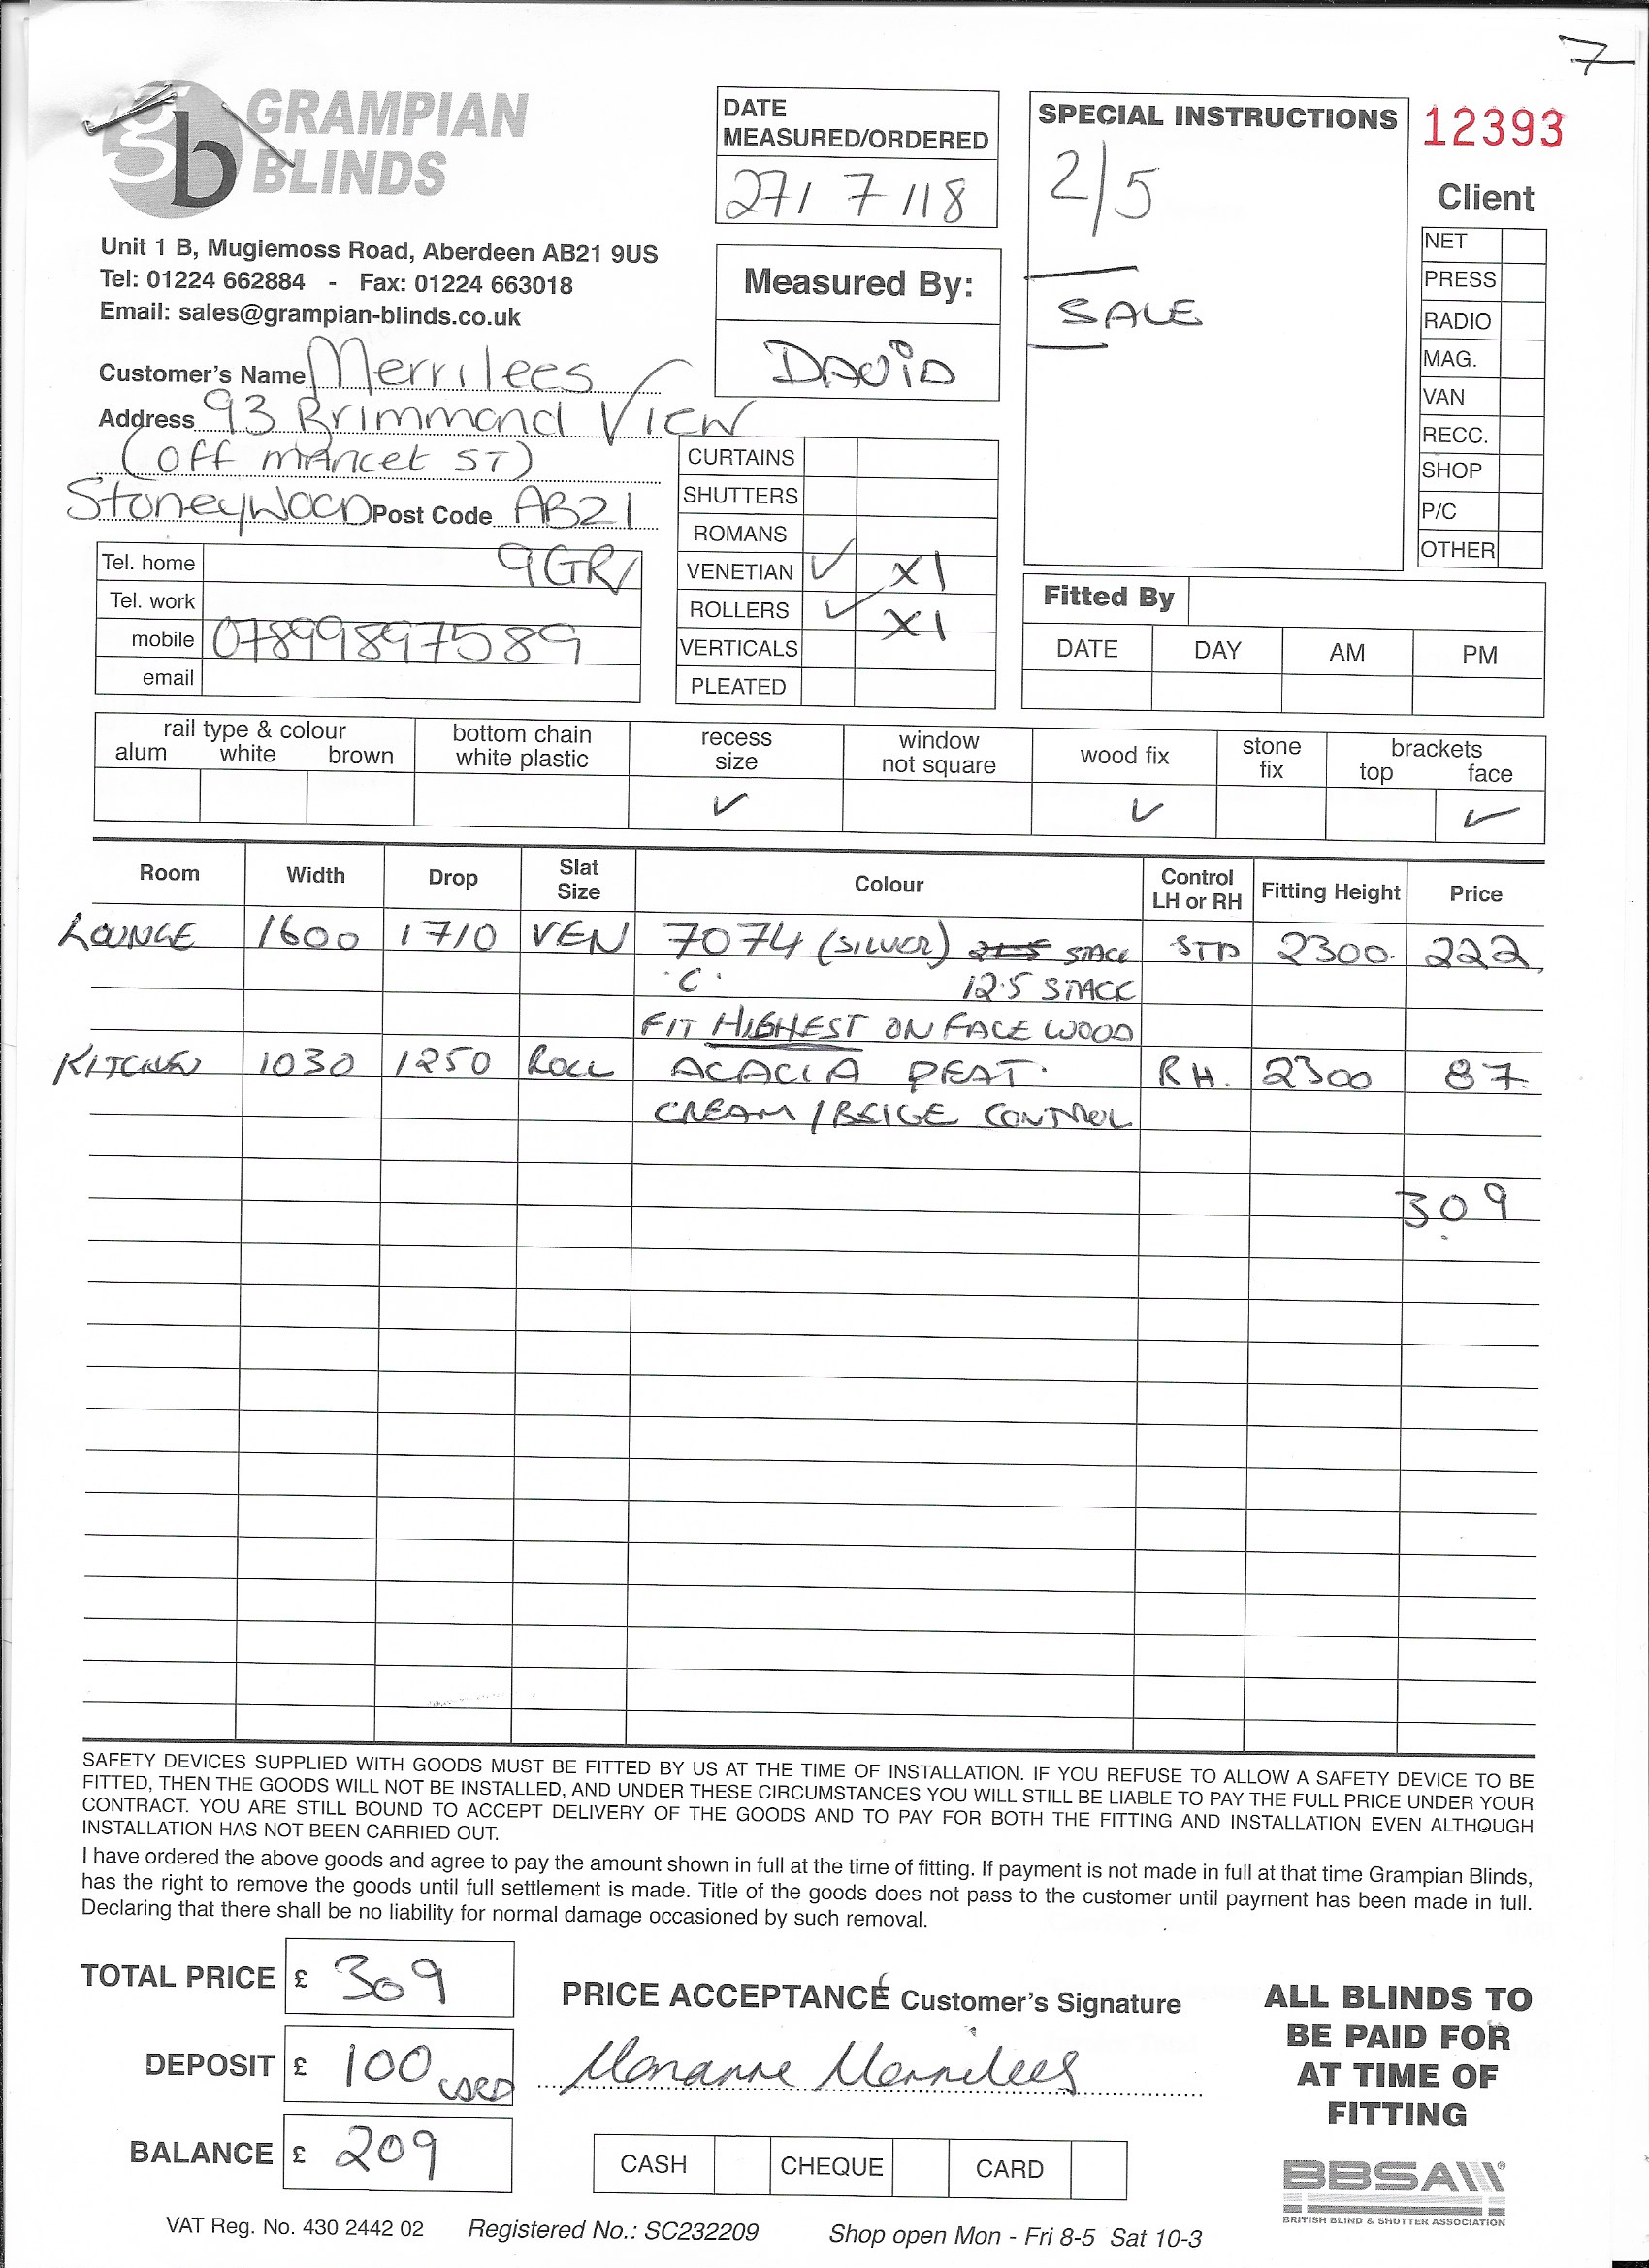 7
gb GRAMPIAN
BLINDS
Unit 1 B, Mugiemoss Road, Aberdeen AB21 9US
Tel: 01224 662884 - Fax: 01224 663018
Email: sales@grampian-blinds.co.uk
DATE
MEASURED/ORDERED
27/7/18
Measured By:
DAVID
SPECIAL INSTRUCTIONS
2/5
SALE
12393
Client
NET
PRESS
RADIO
MAG.
VAN
RECC.
SHOP
P/C
OTHER
Customer's Name Merrilees
Address 93 Brimmond View
(Off Market ST)
Stoneywood Post Code AB21
9GR
Tel. home
Tel. work
mobile 07899897589
email
CURTAINS
SHUTTERS
ROMANS
VENETIAN ✓ X1
ROLLERS ✓ X1
VERTICALS
PLEATED
Fitted By
DATE DAY AM PM
rail type & colour
alum white brown
bottom chain
white plastic
recess
size
✓
window
not square
wood fix
✓
stone
fix
brackets
top face
✓
Room Width Drop Slat Size Colour Control LH or RH Fitting Height Price
LOUNGE 1600 1710 VEN 7074 (SILVER) STACK STD 2300 222
'C' 12.5 STACK
FIT HIGHEST ON FACE WOOD
KITCHEN 1030 1250 ROLL ACACIA PEAT RH. 2300 87
CREAM/BEIGE CONTROL
309
SAFETY DEVICES SUPPLIED WITH GOODS MUST BE FITTED BY US AT THE TIME OF INSTALLATION. IF YOU REFUSE TO ALLOW A SAFETY DEVICE TO BE
FITTED, THEN THE GOODS WILL NOT BE INSTALLED, AND UNDER THESE CIRCUMSTANCES YOU WILL STILL BE LIABLE TO PAY THE FULL PRICE UNDER YOUR
CONTRACT. YOU ARE STILL BOUND TO ACCEPT DELIVERY OF THE GOODS AND TO PAY FOR BOTH THE FITTING AND INSTALLATION EVEN ALTHOUGH
INSTALLATION HAS NOT BEEN CARRIED OUT.
I have ordered the above goods and agree to pay the amount shown in full at the time of fitting. If payment is not made in full at that time Grampian Blinds,
has the right to remove the goods until full settlement is made. Title of the goods does not pass to the customer until payment has been made in full.
Declaring that there shall be no liability for normal damage occasioned by such removal.
TOTAL PRICE £ 309
DEPOSIT £ 100 CARD
BALANCE £ 209
PRICE ACCEPTANCE Customer's Signature
Merrilees
CASH CHEQUE CARD
ALL BLINDS TO
BE PAID FOR
AT TIME OF
FITTING
BBSA
BRITISH BLIND & SHUTTER ASSOCIATION
VAT Reg. No. 430 2442 02 Registered No.: SC232209 Shop open Mon - Fri 8-5 Sat 10-3